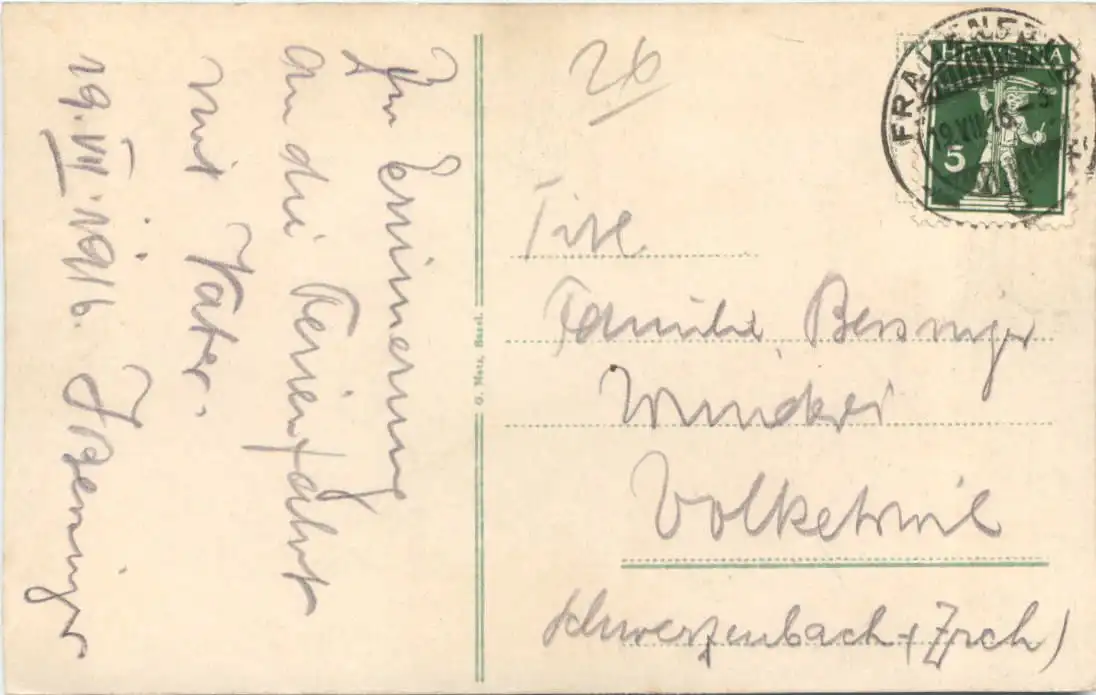 Zur Erinnerung
an die Ferienfahrt
mit Vater.
19. VII. 1916. J Benninger
G. Metz, Basel.
26
HELVETIA
5
FRAUENFELD
19.VII.16.-3
Titl.
Familie
Volketswil
Schwerzenbach (Zrch)